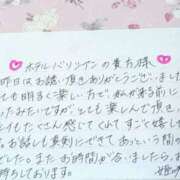 ♡ ホテルバリンインの貴方様 ♡
昨日はお誘い頂きありがとうございました
ても明るく楽い方で、私が
ったみたいですが、とても楽しんで頂き、
けてたくさん感じてくれてすごく嬉して
お話しも真剣にできてあっという間の
でした♪またお時間が合いましたら、お
待ちしております。